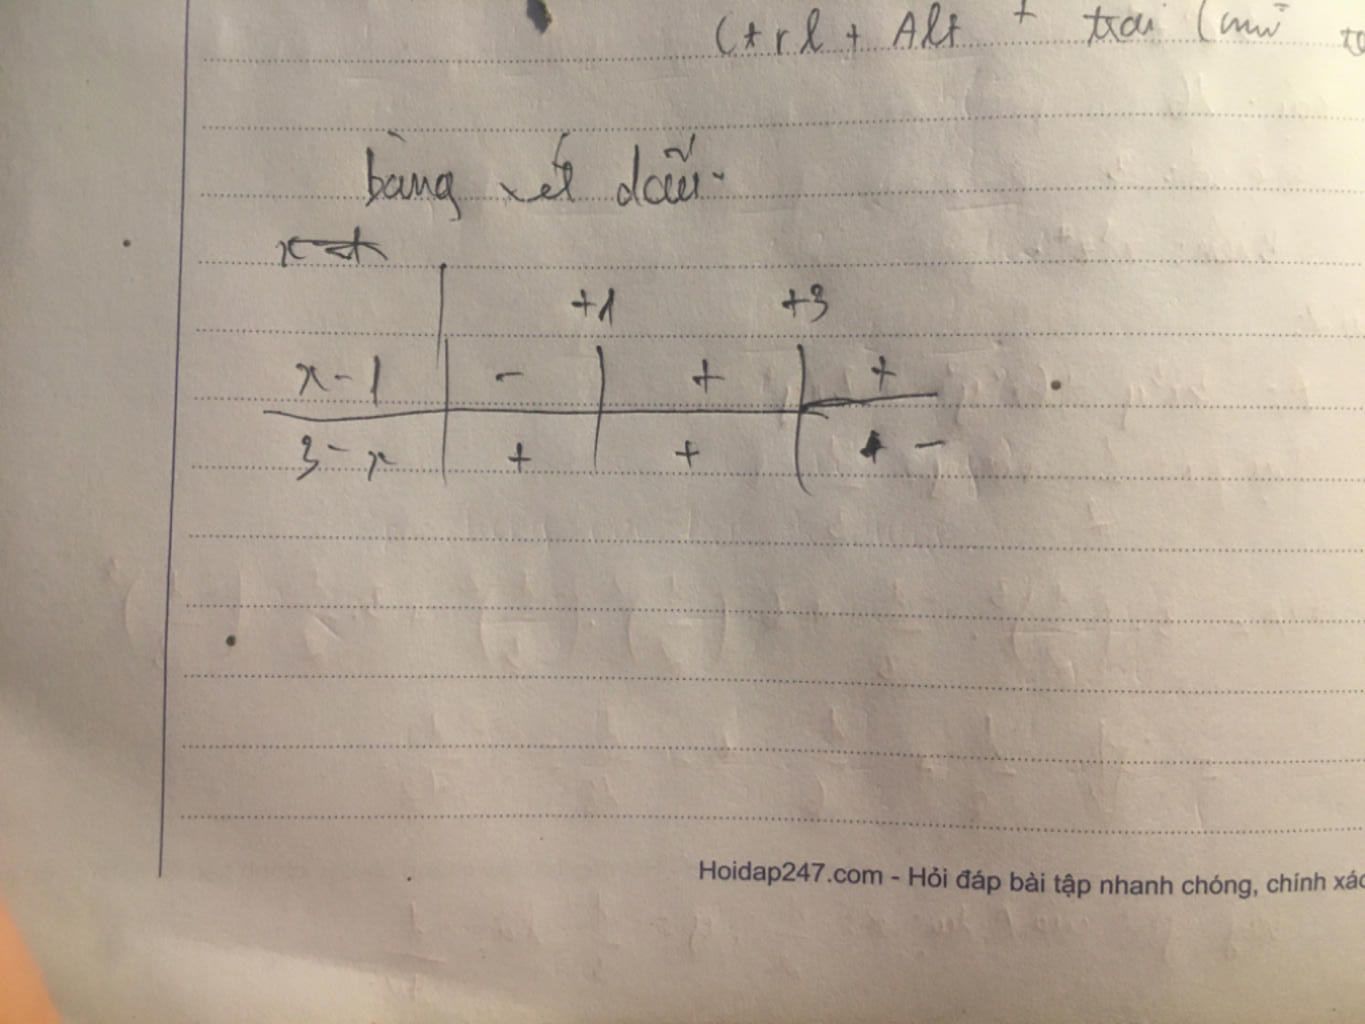 Ctrl + Alt + trái (mũ
bảng xét dấu
+1 +3
x-1 - + +
3-x + + -
Hoidap247.com - Hỏi đáp bài tập nhanh chóng, chính xác